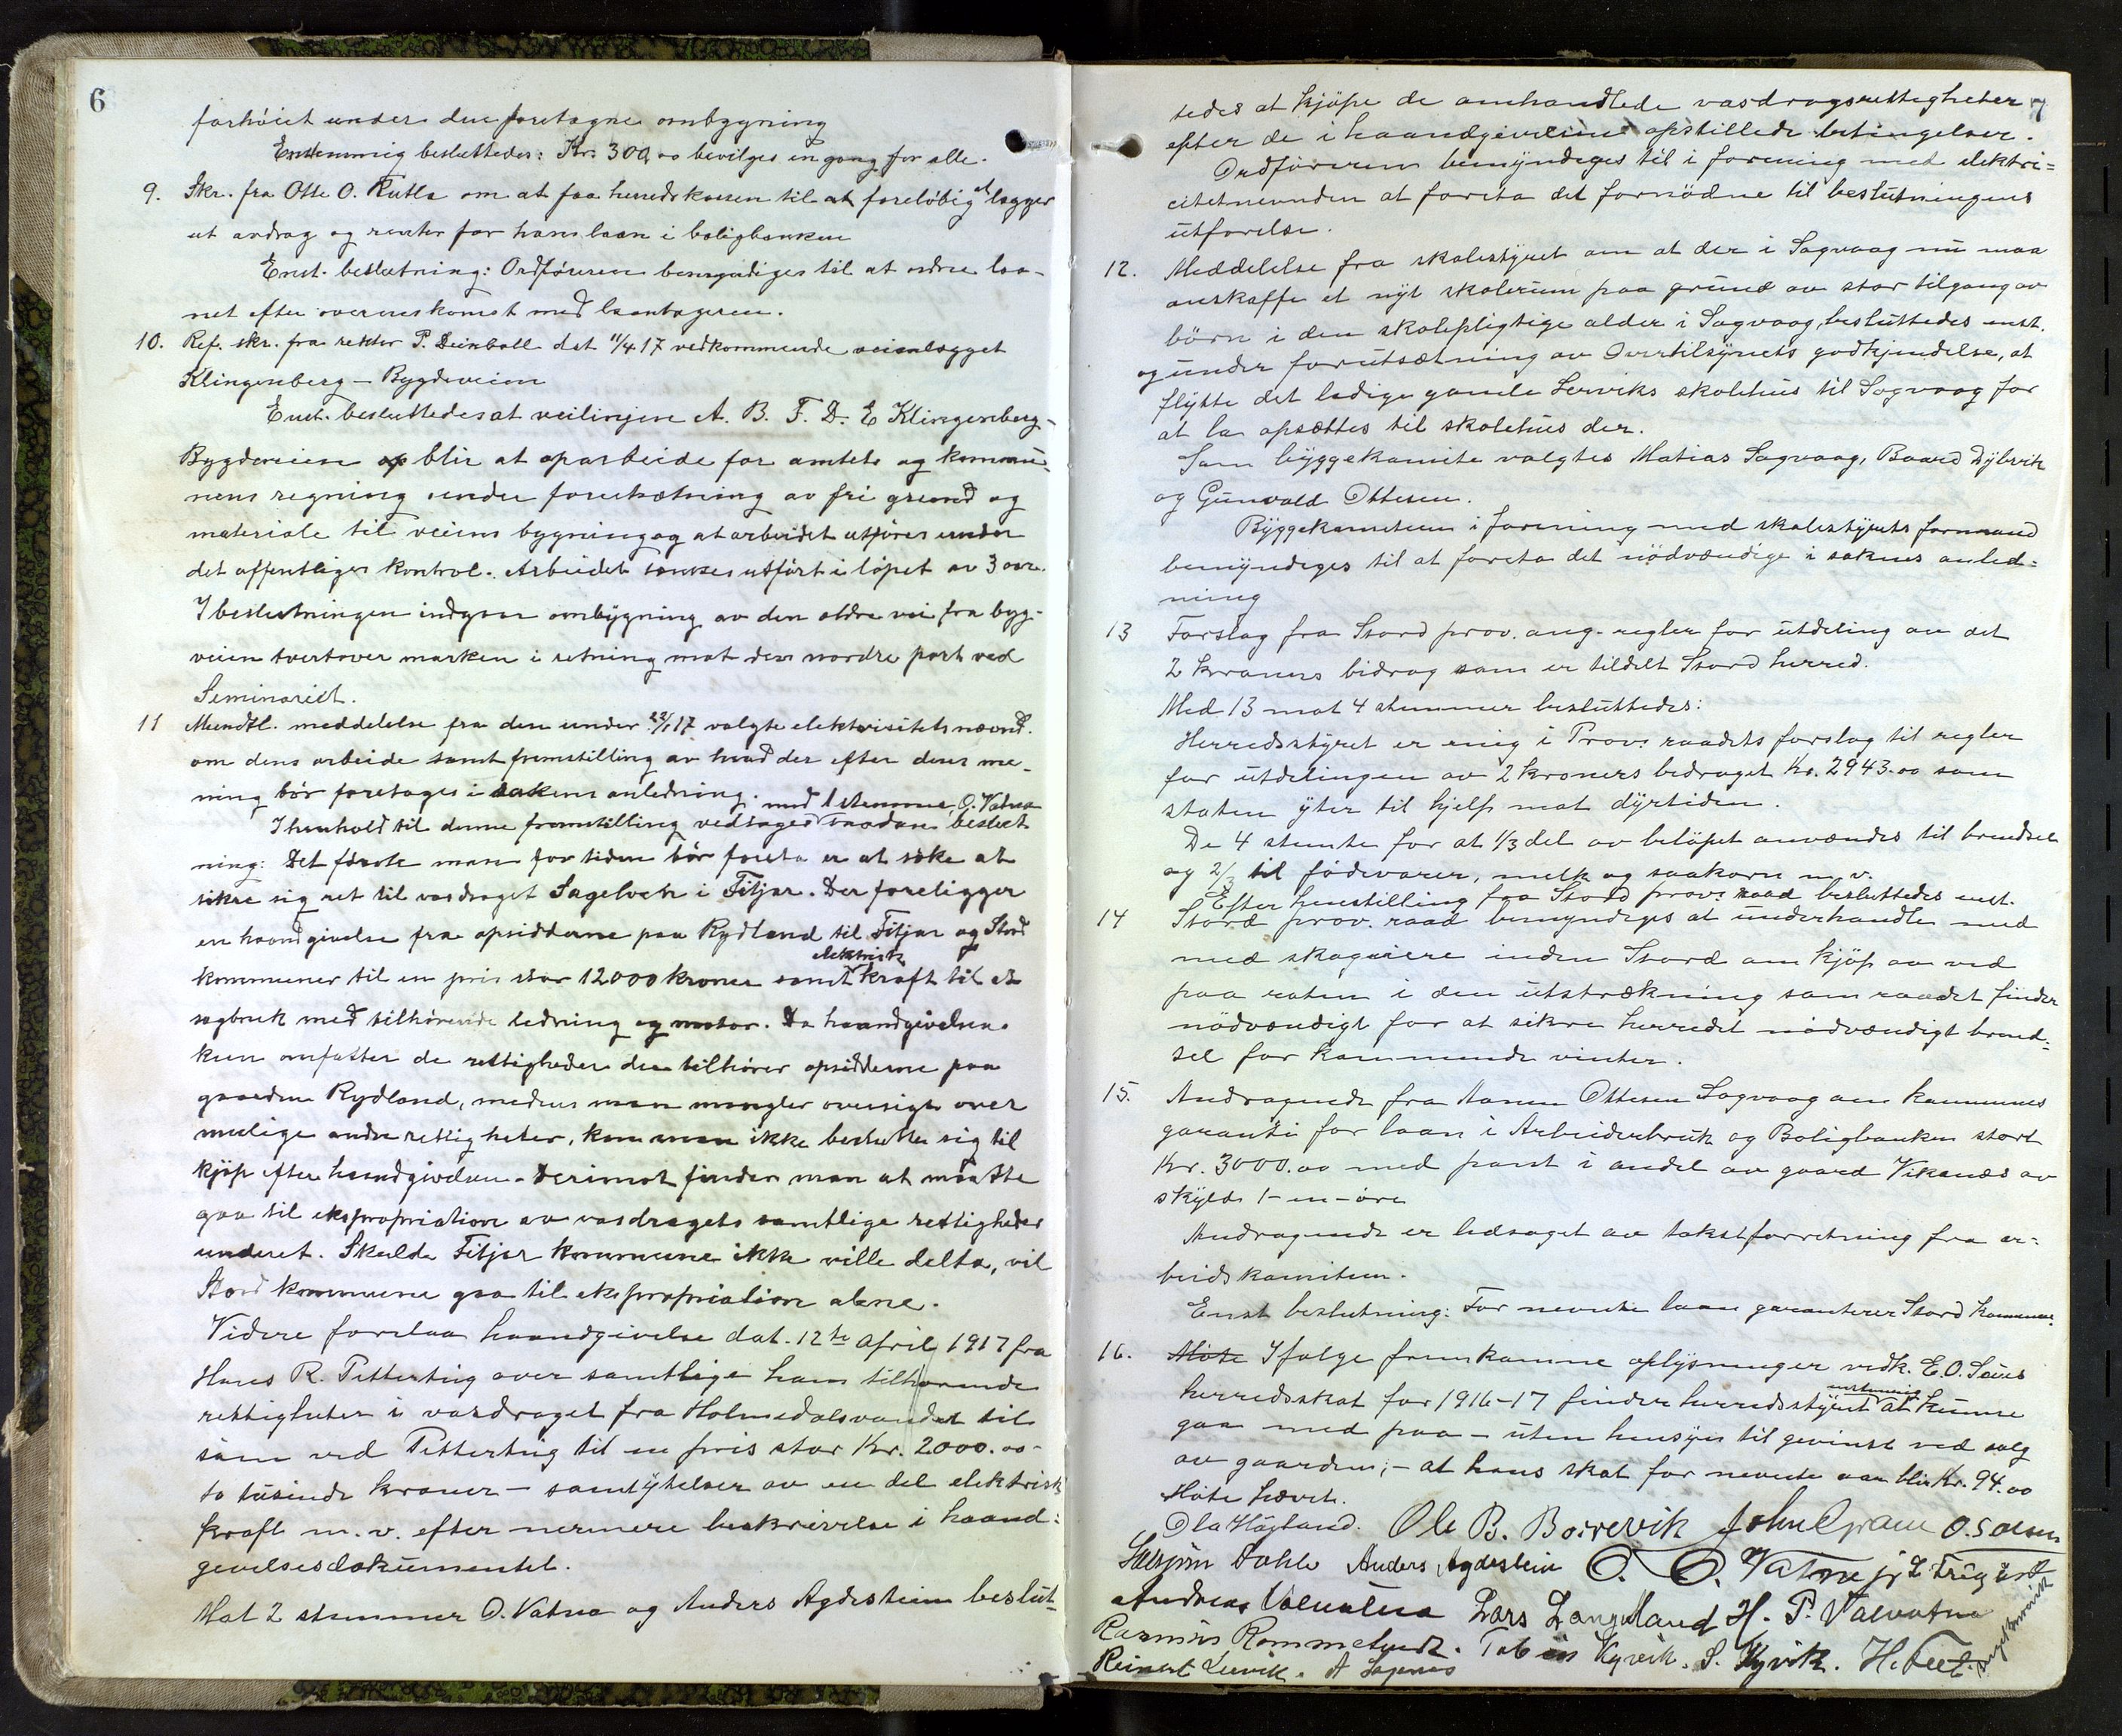 6
forhöiet under den foretagne ombygning
Enstemmig besluttedes: Kr. 300,00 bevilges en gang for alle.
9. Skr. fra Otte O. Rutle om at faa herredskassen til at foreløbig at lægger
ut avdrag og renter for hans laan i boligbanken
Enst. beslutning: Ordføreren bemyndiges til at ordne laa-
net efter overenskomst med laantageren.
10. Ref. skr. fra rektor P. Deinboll dat 11/4 17 vedkommende veianlægget
Klingenberg – Bygdeveien
Enst. besluttedes at veilinjen A. B. F. D. E Klingenberg-
Bygdeveien blir at oparbeide for amtets og kommu-
nens regning under forutsætning av fri grund og
materiale til veiens bygning og at arbeidet utføres under
det offentliges kontrol. Arbeidet tænkes utført i löpet av 3 aar.
I beslutningen indgaar ombygning av den ældre vei fra byg-
veien tvertover marken i retning mot den nordre port ved
Seminariet.
11 Mundtl. meddelelse fra den under 22/1 17 valgte elektrisitetsnævnd.
om dens arbeide samt fremstilling av hvad der efter deres me-
ning bör foretages i sakens anledning.
mod 1 stemme, O. Vatna
I henhold til denne fremstilling vedtages saadan beslut
ning: Det første man for tiden bör foreta er at söke at
sikre sig ret til vasdraget Sagelven i Fitjar. Der foreligger
en haandgivelse fra opsidderne paa Rydland til Fitjar og Stord
kommuner til en pris stor 12000 kroner samt elektrisk kraft til et
sagbruk med tilhørende ledning og motor. Da haandgivelsen
kun omfatter de rettigheder den tilhører opsidderne paa
gaarden Rydland, medens man mangler oversigt over
mulige andre rettigheter, kan man ikke beslutte sig til
kjöp efter haandgivelsen. Derimot finder man at maatte
gaa til ekspropriation av vasdragets samtlige rettigheder
underet. Skulde Fitjar kommune ikke ville delta, vil
Stord kommune gaa til ekspropriation alene.
Videre forelaa haandgivelse dat. 12te april 1917 fra
Hans R. Tittertug over samtlige ham tilhørende
rettigheter i vasdraget fra Holmedalsvandet til
sjøen ved Pettertug til en pris stor Kr. 2000.00 –
to tusinde kroner – samt ydelser av en del elektrisk
kraft m. v. efter nermere beskrivelse i haand:
gevelsesdokumentet.
Mot 2 stemmer O. Vatna og Anders Agdestein beslut-
7
tedes at kjöpe de omhandlede vasdragsrettigheter
efter de i haandgivelsene opstillede betingelser.
Ordføreren bemyndiges til i forening med elektri=
citetnevnden at foreta det fornödne til beslutningens
utførelse.
12. Meddelelse fra skolestyret om at der i Sagvaag nu maa
anskaffe et nyt skolerum paa grund av stor tilgang av
börn i den skolepligtige alder i Sagvaag, besluttedes enst.
og under forutsætning av Overtilsynets godkjendelse, at
flytte det ledige gamle Lerviks skolehus til Sagvaag for
at la opsættes til skolehus der.
Som byggekomite valgtes Matias Sagvaag, Baard Dybvik
og Gunvald Ottesen.
Byggekomiteen i forening med skolestyrets formand
bemyndiges til at foreta det nödvændige i sakens anled=
ning
13 Forslag fra Stord prov. ang. regler for utdeling av det
2 kroners bidrag som er tildelt Stord herred.
Med 13 mot 4 stemmer besluttedes:
Herredsstyret er enig i Prov. raadets forslag til regler
for utdelingen av 2 kroners bedraget Kr. 2943.00 som
staten yter til hjelp mot dyrtiden.
De 4 stemte for at 1/3 del av belöpet anvændes til brendsel
og 2/3 til födevarer, melk og saakorn m. v.
Efter henstilling fra Stord prov: raad besluttedes enst.
14 Stord prov. raad bemyndiges at underhandle med
med skogeiere inden Stord om kjöp av ved
paa roten i den utstrækning som raadet finder
nödvendigt for at sikre herredet nödvændigt brend=
sel for kommende vinter.
15. Andragende fra Ottesen Sagvaag om kommunes
garanti for laan i Arbeiderbruk og Boligbanken stort
Kr. 3000.00 med pant i andel av gaard Vikanæs av
skyld 1-en-öre
Andragende er ledsaget av takstforretning fra ar=
beidskomiteen.
Enst beslutning: For nevnte laan garanterer Stord kommune.
16. Møte Ifølge fremkomne oplysninger vedk. E. O. Seies
herredsskat for 1916-17 finder herredsstyret enstemmig at kunne
gaa med paa – uten hensyn til gevinst ved salg
av gaarden; – at hans skat for nevnte aar blir Kr. 94.00
Møte hævet.
Ola Høyland. Ole B. Borrevik John Gram O. S Olsen
Dahle Anders Agdestein O. O. Vatne jr
Andreas Valvatna Lars Langeland H. P. Valvatna
Rasmus Rommetvedt. Tobias Kyvik. S. Kyvik. H.
Reinert Lervik. A